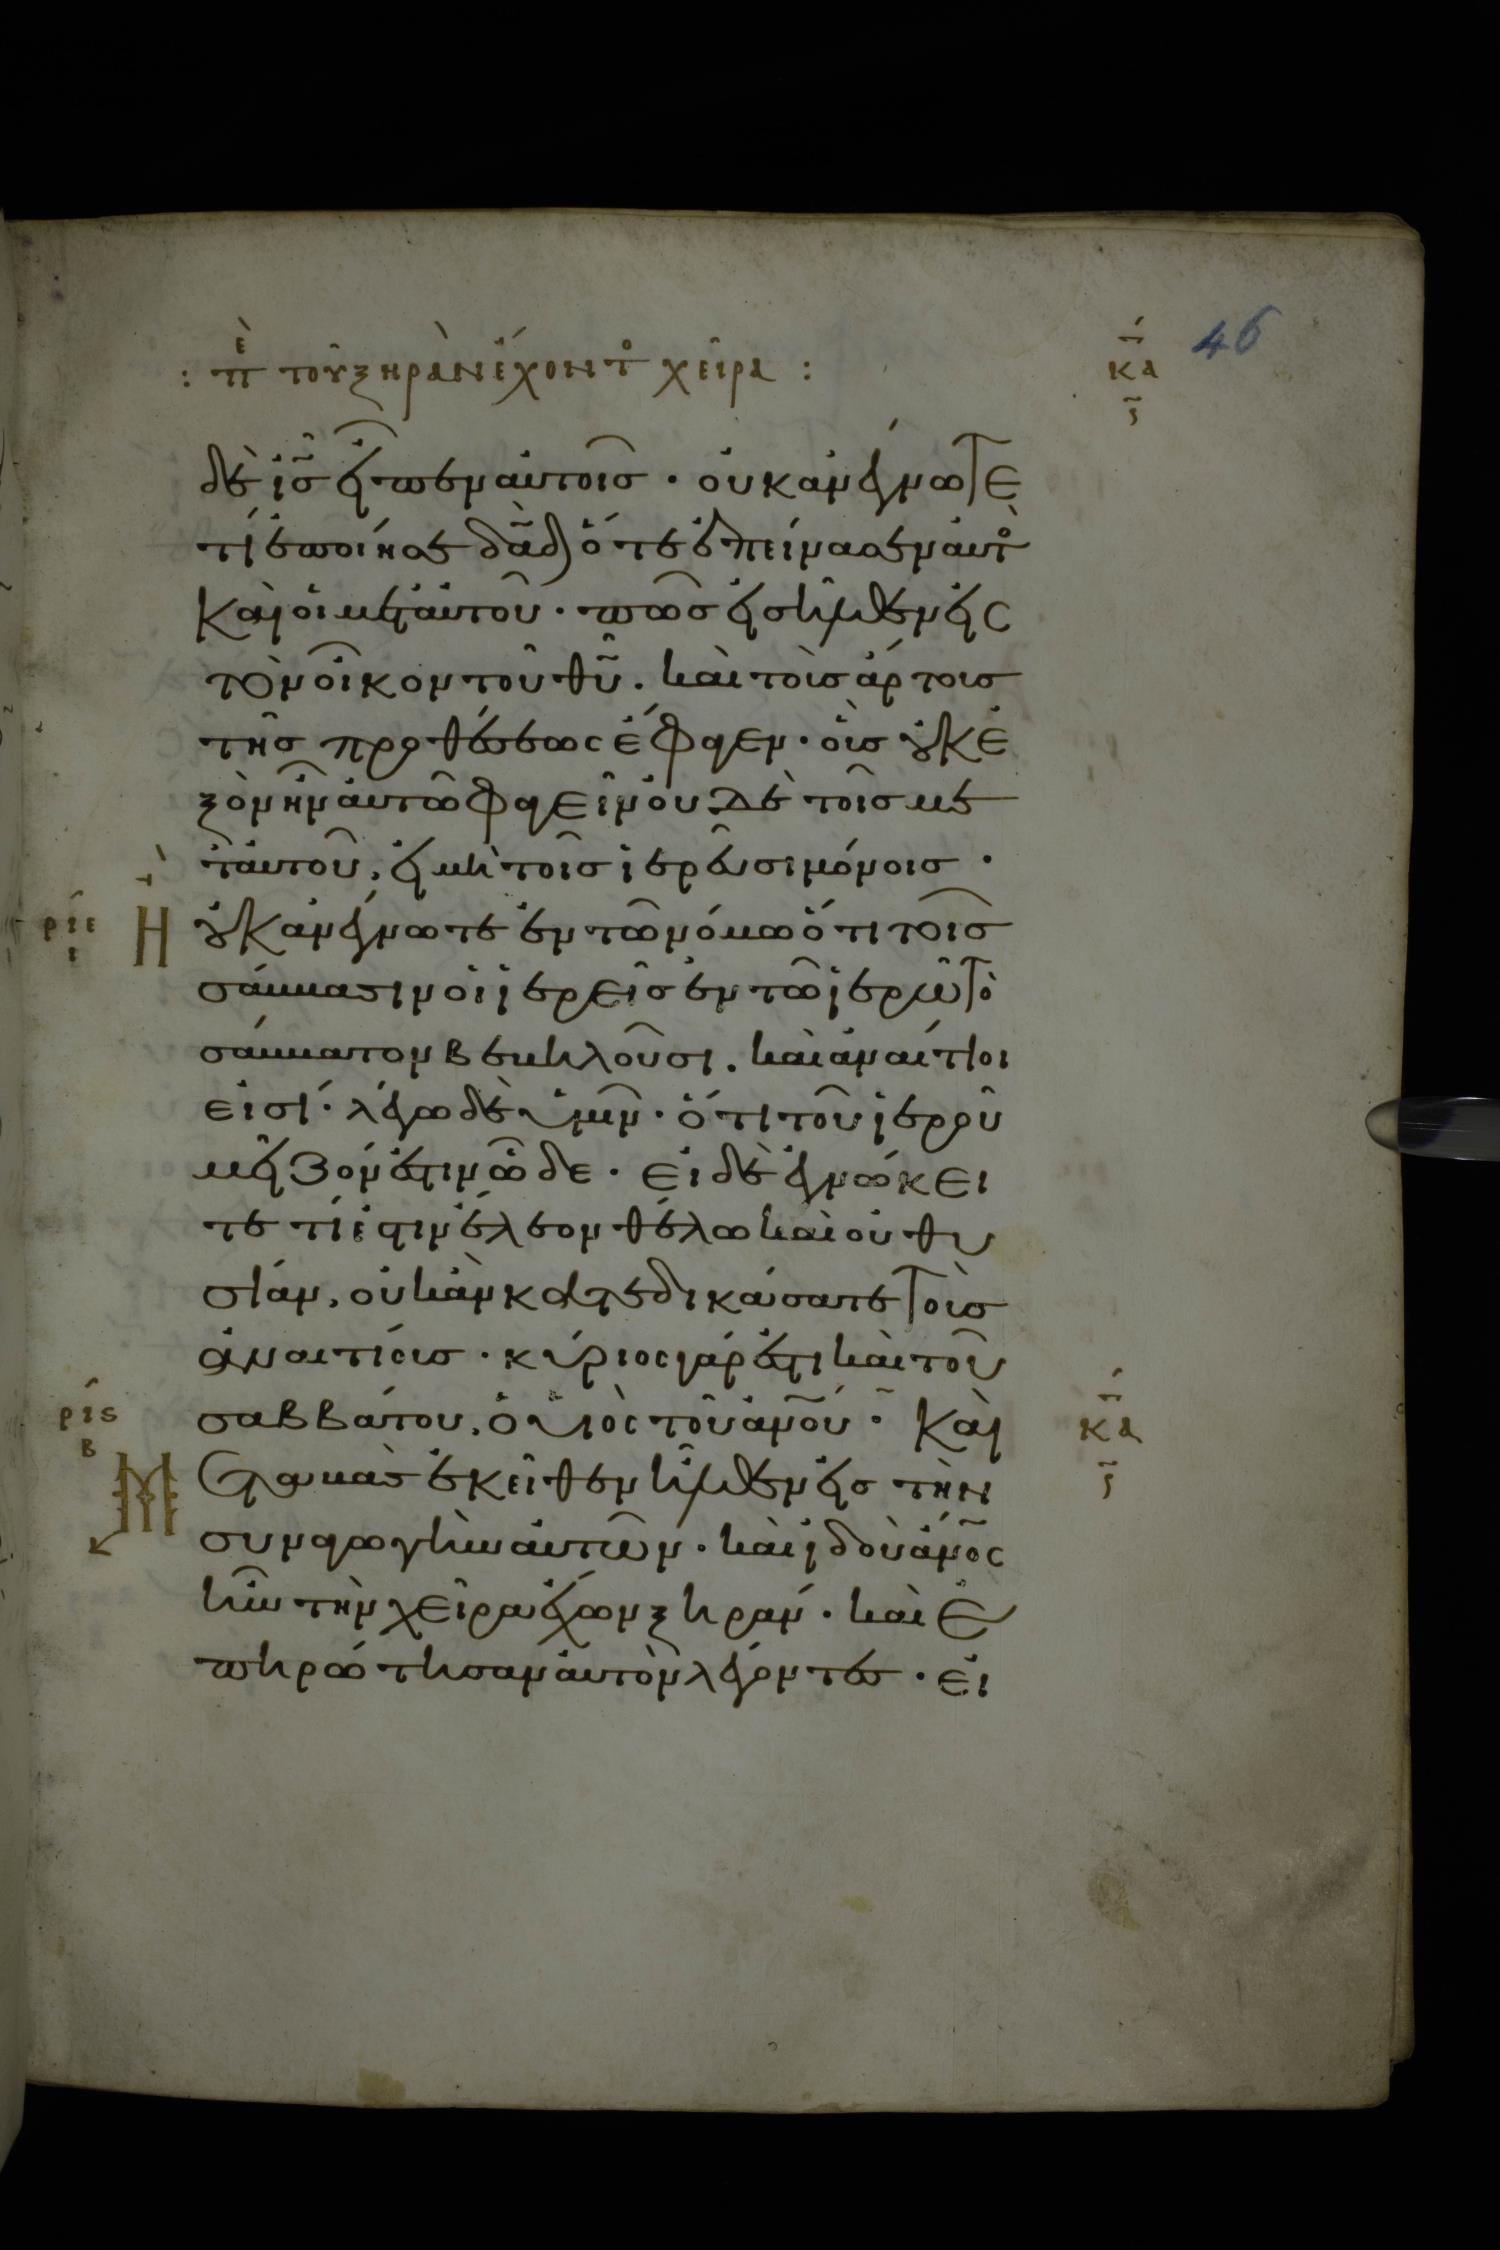 : πὲ τοῦ ξηρὰν ἔχοντο χεῖρα :
κα
46
δὲ ι̅ς̅ εἶπεν αὐτοῖς · οὐκ ἀνέγνωτε
τί ἐποίησε δα̅δ̅ ὅτε ἐπείνασεν αὐτὸς
καὶ οἱ μετ αὐτοῦ · πῶς εἰσῆλθεν εἰς
τὸν οἶκον τοῦ θ̅υ̅ . καὶ τοὺς ἄρτους
τῆς προθέσεως ἔφαγεν · οὓς οὐκ ἐ
ξὸν ἦν αὐτῶ φαγεῖν οὐδὲ τοῖς με
τ αὐτοῦ , εἰ μὴ τοῖς ἱερεῦσι μόνοις ·
ριε
ι
Η οὐκ ἀνέγνωτε ἐν τῶ νόμω ὅτι τοῖς
σάββασιν οἱ ἱερεῖς ἐν τῶ ἱερῶ τὸ
σάββατον βεβηλοῦσι . καὶ ἀναίτιοι
εἰσί · λέγω δὲ ὑμῖν · ὅτι τοῦ ἱεροῦ
μεῖζον ἐστιν ὧδε · εἰ δὲ ἐγνώκει
τε τί ἐστιν ἔλεον θέλω καὶ οὐ θυ
σίαν , οὐκ ἂν κατεδικάσατε τοὺς
ἀναιτίους · κύριος γάρ ἐστι καὶ τοῦ
ριϛ
β
σαββάτου , ὁ υἱὸς τοῦ α̅ν̅ο̅υ̅ · Καὶ
κα
μεταβὰς ἐκεῖθεν ἦλθεν εἰς τὴν
συναγωγὴν αὐτῶν · καὶ ἰδοὺ α̅ν̅ο̅ς̅
ἦν τὴν χεῖρα ἔχων ξηράν · καὶ ἐ
πηρώτησαν αὐτὸν λέγοντες · εἰ